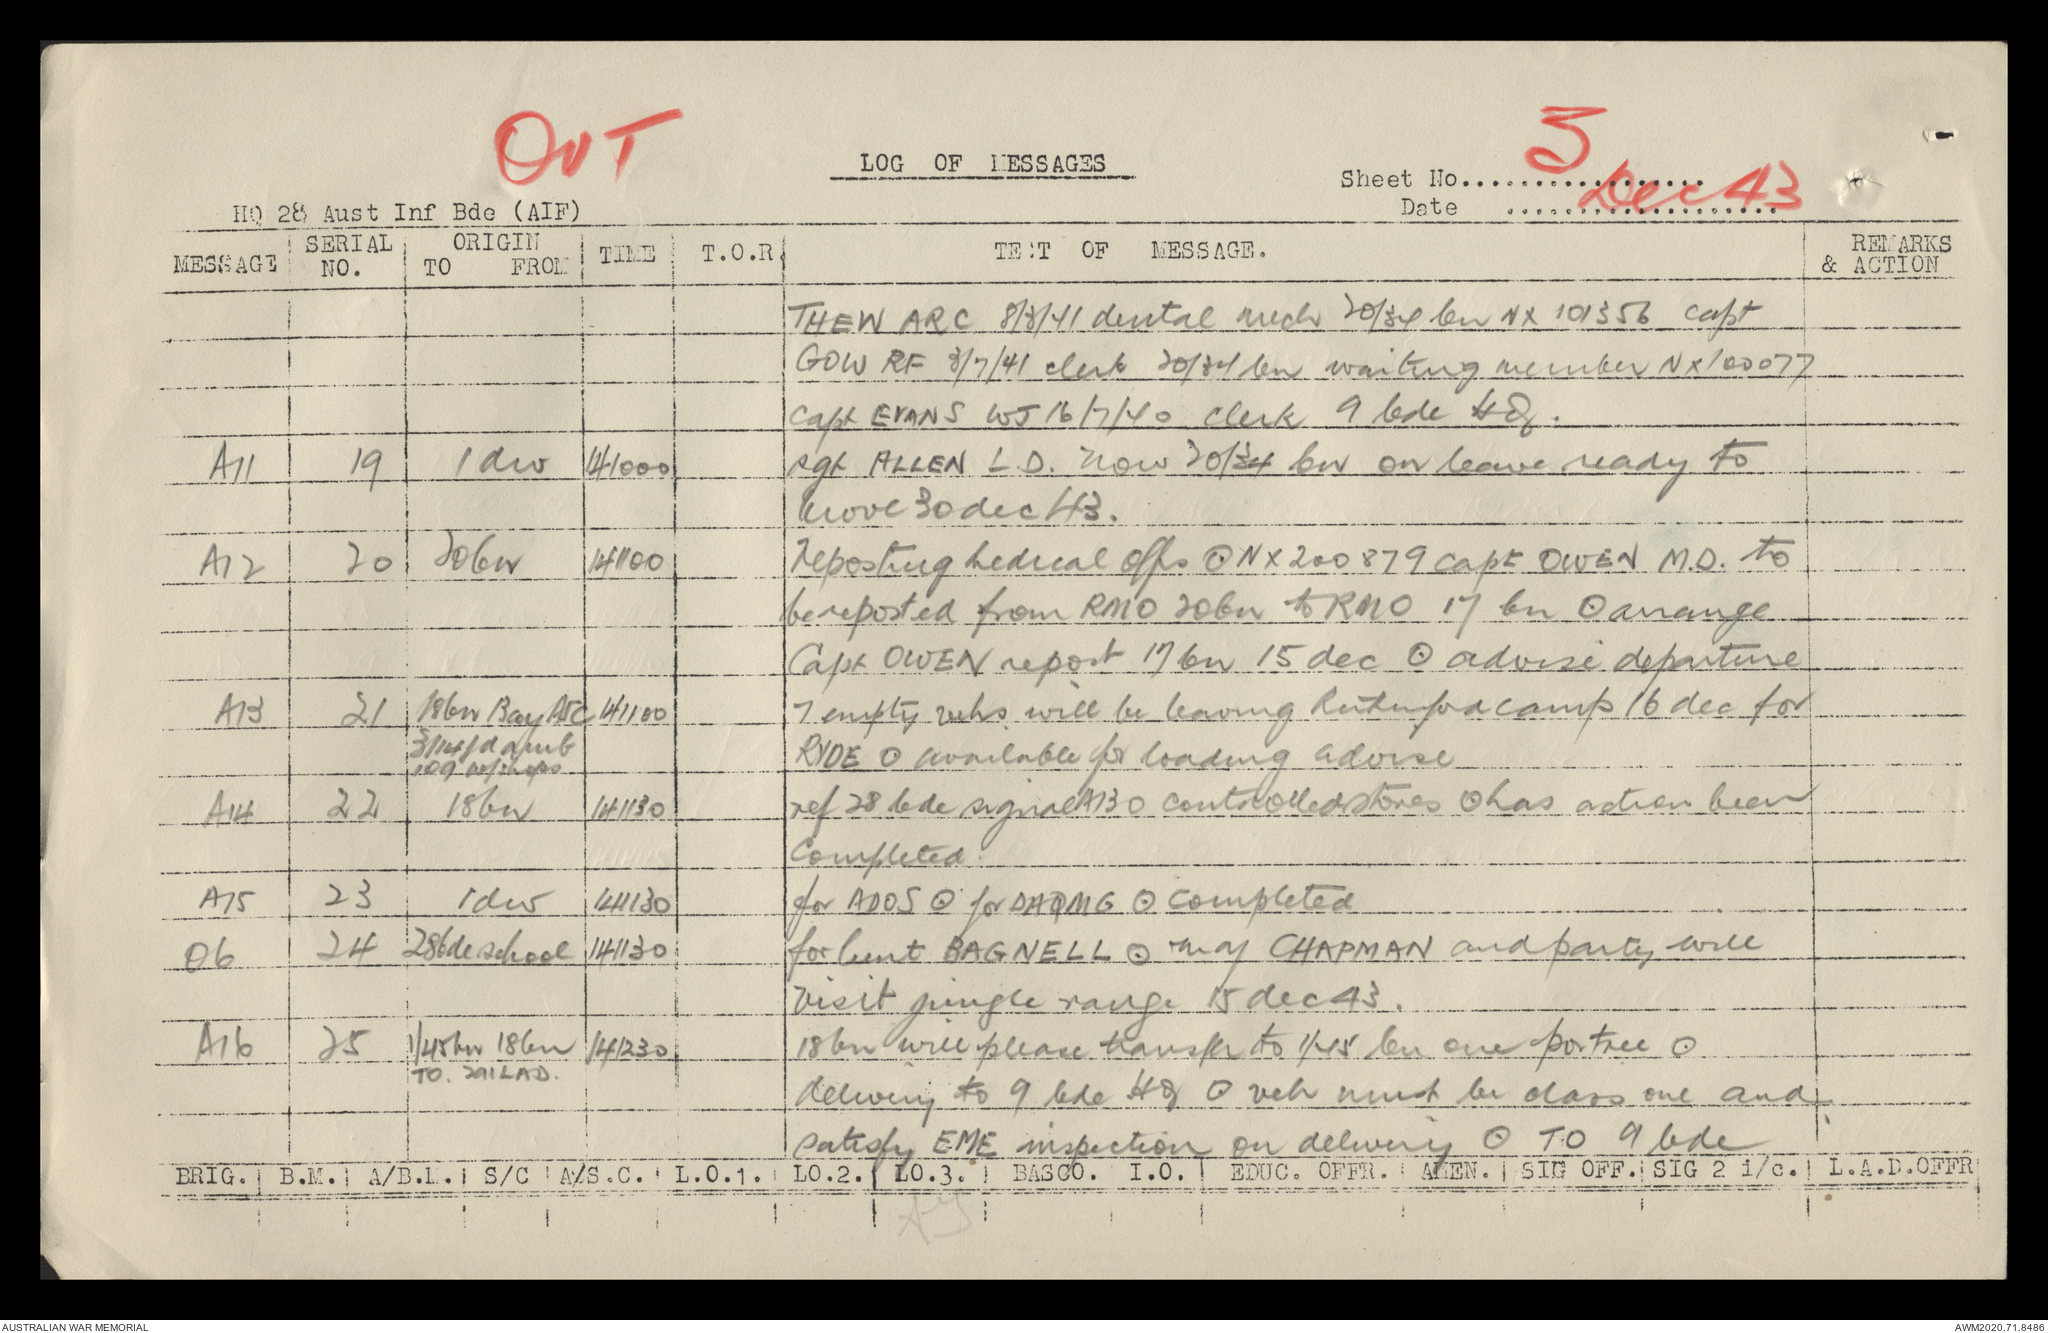 OUT
LOG OF MESSAGES
Sheet No.................. 5
Date .................... Dec 43
HQ 28 Aust Inf Bde (AIF)
MESSAGE | SERIAL NO. | ORIGIN TO FROM | TIME | T.O.R. | TEXT OF MESSAGE. | REMARKS & ACTION
THEW ARC 8/3/41 dental mech 20/34 bn NX 101356 Capt
GOW RF 3/7/41 clerk 20/34 bn waiting member NX100077
Capt EVANS WJ 16/7/40 clerk 9 bde HQ.
A11 | 19 | 1 div | 141000 | sgt ALLEN L.D. now 20/34 bn on leave ready to
move 30 dec 43.
A12 | 20 | 20bn | 141100 | reposting medical offrs ⊙ NX200879 Capt OWEN M.D. to
be reposted from RMO 20bn to RMO 17 bn ⊙ arrange
Capt OWEN report 17 bn 15 dec ⊙ advise departure
A13 | 21 | 18bn Bay ASC | 141100 | 7 empty vehs will be leaving Rutherford camp 16 dec for
3/14 fd amb
109 w/shops | RYDE ⊙ available for loading advise
A14 | 22 | 18bn | 141130 | ref 28 bde signal A130 controlled stores ⊙ has action been
completed.
A15 | 23 | 1 div | 141130 | for ADOS ⊙ for DAQMG ⊙ completed
O6 | 24 | 28bde school | 141130 | for lieut BAGNELL ⊙ maj CHAPMAN and party will
visit jungle range 15 dec 43.
A16 | 25 | 1/45bn 18bn | 141230 | 18bn will please transfer to 1/45 bn one portee ⊙
TO. 291 LAD.
delivery to 9 bde HQ ⊙ veh must be class one and
satisfy EME inspection on delivery ⊙ TO 9 bde
BRIG. | B.M. | A/B.M. | S/C | A/S.C. | L.O.1. | LO.2. | LO.3. | BASCO. I.O. | EDUC. OFFR. | AMEN. | SIG OFF. | SIG 2 i/c. | L.A.D.OFFR
AUSTRALIAN WAR MEMORIAL
AWM2020.71.8486